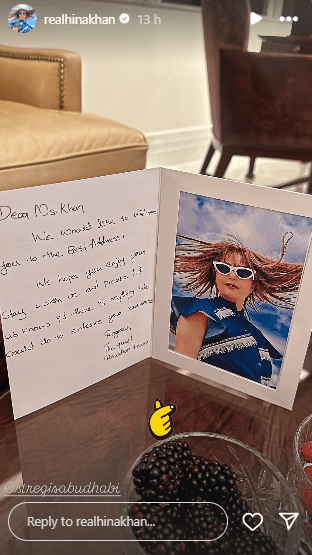 realhinakhan 13 h
Dear Ms. Khan
We would like to welcome
you to the Best Address.
We hope you enjoy your
stay with us and please let
us know if there is anything we
could do to enhance your
@stregisabudhabi
Reply to realhinakhan...